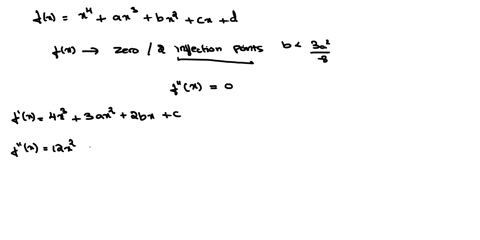 f(x) = x⁴ + ax³ + bx² + cx + d
f(x) → zero / 2 inflection points b < 3a²/8
f''(x) = 0
f'(x) = 4x³ + 3ax² + 2bx + c
f''(x) = 12x²